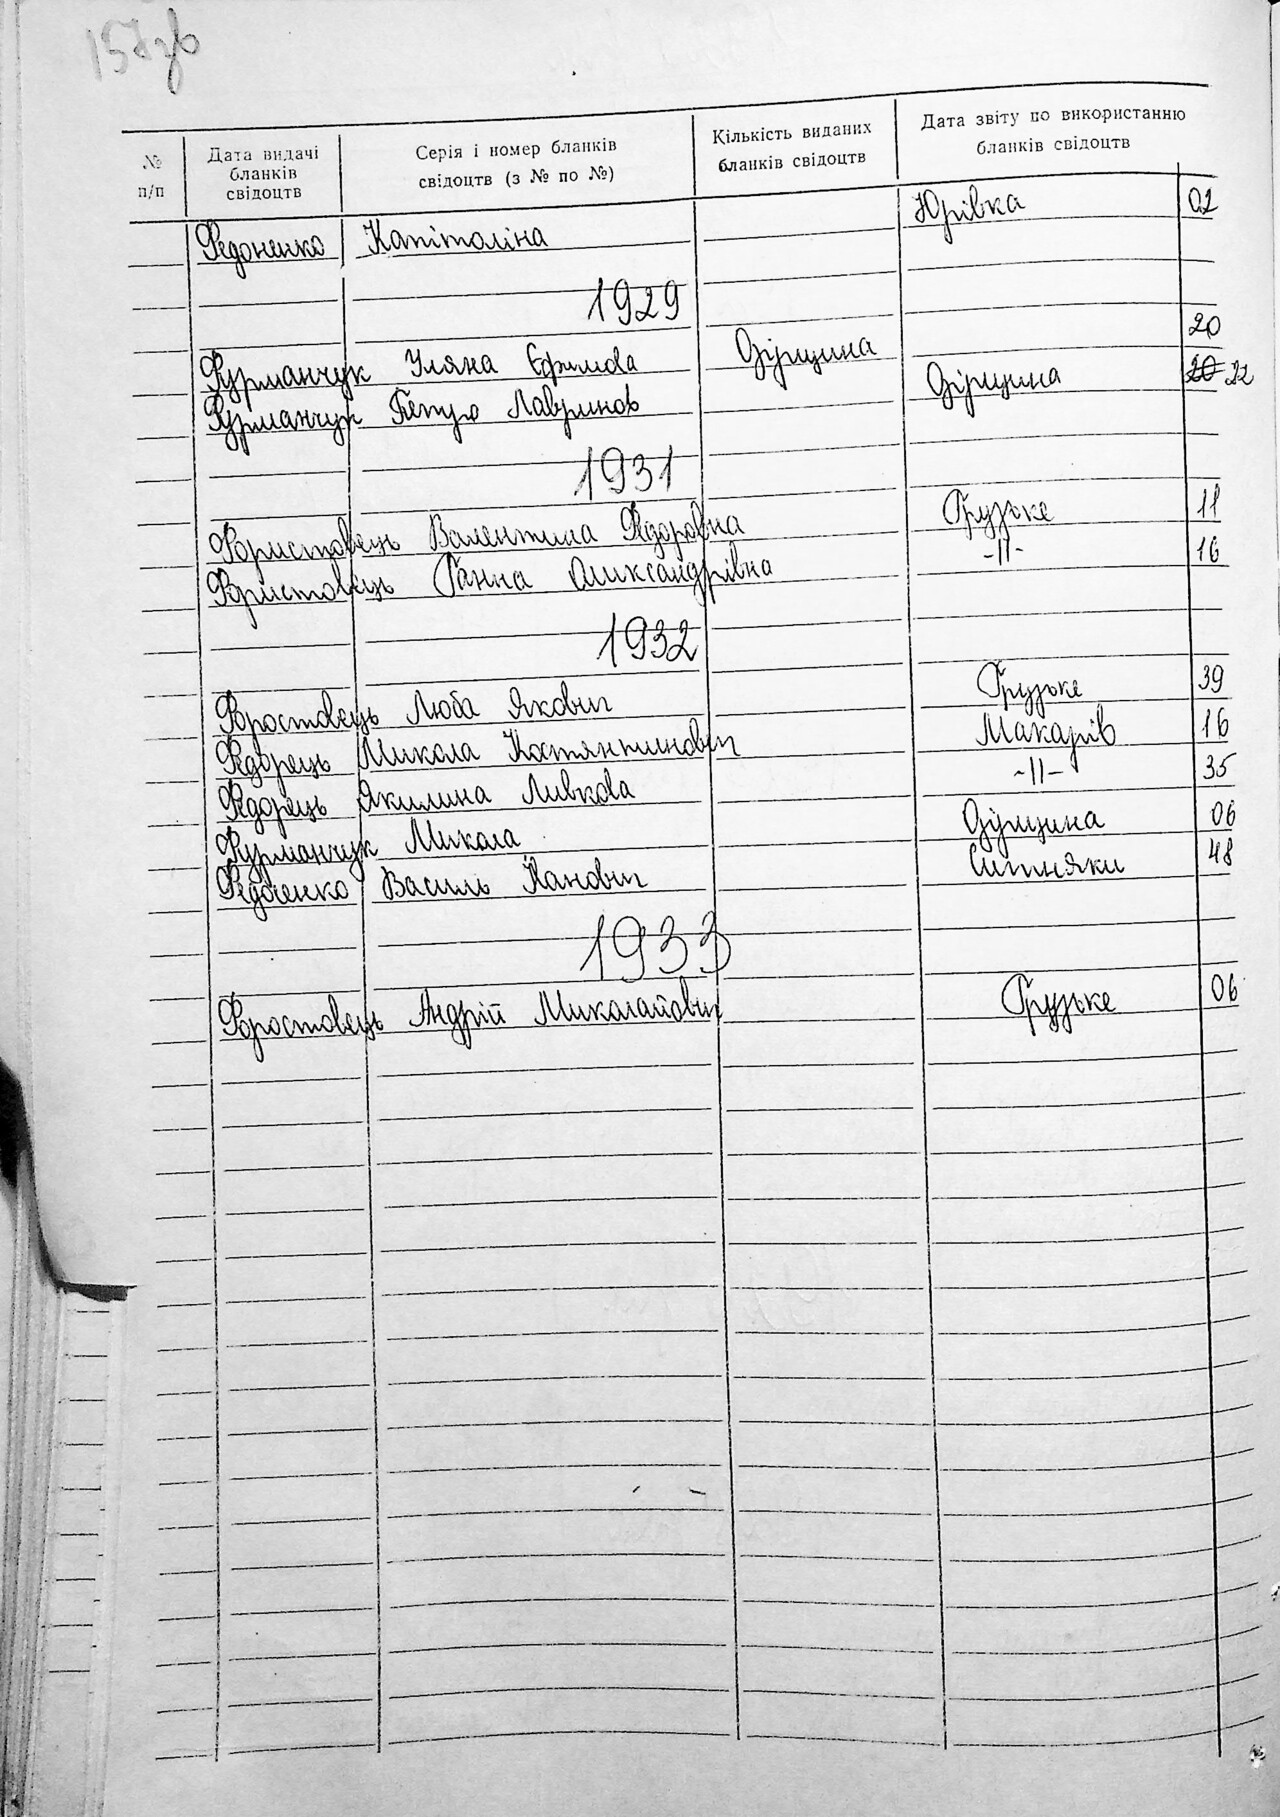 157зв
№ п/п | Дата видачі бланків свідоцтв | Серія і номер бланків свідоцтв (з № по №) | Кількість виданих бланків свідоцтв | Дата звіту по використанню бланків свідоцтв
Федоненко Капітоліна Юрівка 02
1929
Фурманчук Уляна Єфимова Зурщина 20
Фурманчук Петро Лавринов Зурщина 20 22
1931
Фористовець Валентина Федоровна Грузьке 11
Фористовець Ганна Оликсандрівна -||- 16
1932
Форостовець Люба Якович Грузьке 39
Федорець Микола Костянтинович Макарів 16
Федорець Якилина Ливкова -||- 35
Фурманчук Микола Зурщина 06
Федоченко Василь Іванович Ситняки 48
1933
Форостовець Андрій Миколайович Грузьке 06